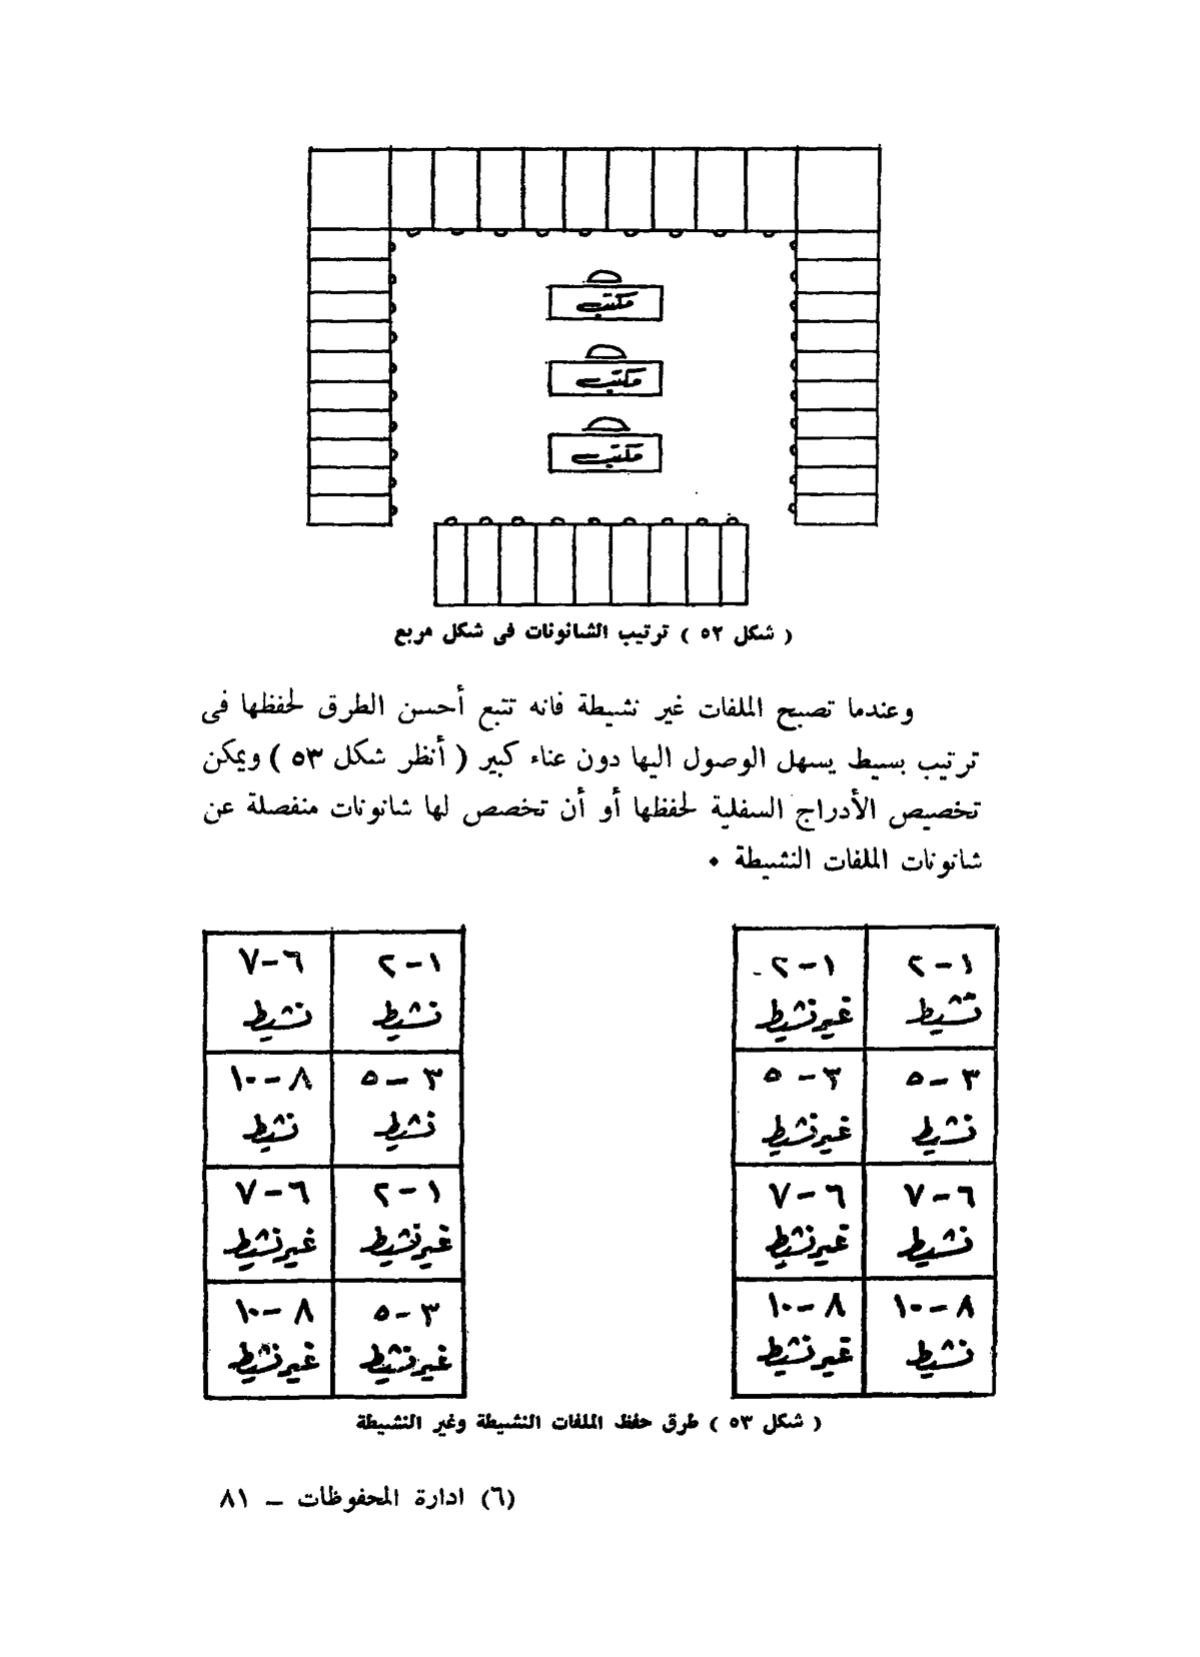 مكتب
مكتب
مكتب
( شكل ٥٢ ) ترتيب الشانونات فى شكل مربع
وعندما تصبح الملفات غير نشيطة فانه تتبع أحسن الطرق لحفظها فى
ترتيب بسيط يسهل الوصول اليها دون عناء كبير ( أنظر شكل ٥٣ ) ويمكن
تخصيص الأدراج السفلية لحفظها أو أن تخصص لها شانونات منفصلة عن
شانونات الملفات النشيطة ٠
١ – ٢
نشيط
١ – ٢
غير نشيط
٣ – ٥
نشيط
٣ – ٥
غير نشيط
٦ – ٧
نشيط
٦ – ٧
غير نشيط
٨ – ١٠
نشيط
٨ – ١٠
غير نشيط
١ – ٢
نشيط
٦ – ٧
نشيط
٣ – ٥
نشيط
٨ – ١٠
نشيط
١ – ٢
غير نشيط
٦ – ٧
غير نشيط
٣ – ٥
غير نشيط
٨ – ١٠
غير نشيط
( شكل ٥٣ ) طرق حفظ الملفات النشيطة وغير النشيطة
(٦) ادارة المحفوظات – ٨١